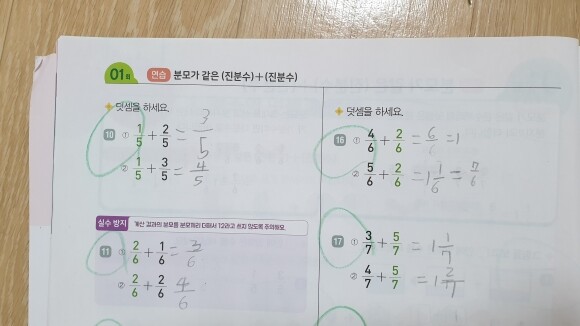 01회 연습 분모가 같은 (진분수)+(진분수)
덧셈을 하세요.
10 ① 1/5 + 2/5 = 3/5
② 1/5 + 3/5 = 4/5
실수 방지 계산 결과의 분모를 분모끼리 더해서 12라고 쓰지 않도록 주의해요.
11 ① 2/6 + 1/6 = 3/6
② 2/6 + 2/6 4/6
덧셈을 하세요.
16 ① 4/6 + 2/6 = 6/6 = 1
② 5/6 + 2/6 = 1 1/6 = 7/6
17 ① 3/7 + 5/7 = 1 1/7
② 4/7 + 5/7 = 1 2/7